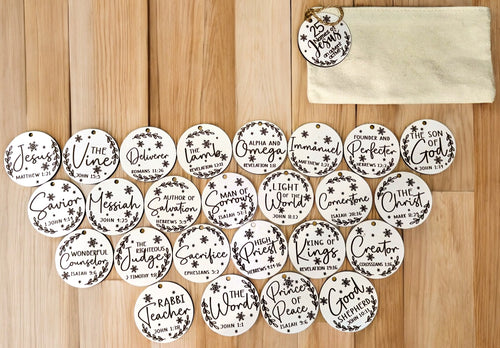 25
Names of
Jesus
Jesus
MATTHEW 1:21
THE
Vine
JOHN 15:5
Deliverer
ROMANS 11:26
THE
Lamb
REVELATION 13:8
ALPHA AND
Omega
REVELATION 1:8
Immanuel
MATTHEW 1:23
FOUNDER AND
Perfecter
HEBREWS 12:2
THE SON
OF
God
JOHN 1:34
Savior
JOHN 4:14
Messiah
JOHN 4:25
AUTHOR OF
Salvation
HEBREWS 5:9
MAN OF
Sorrows
ISAIAH 53:3
LIGHT
OF THE
World
JOHN 8:12
Cornerstone
ISAIAH 28:16
THE
Christ
MARK 8:29
WONDERFUL
Counselor
ISAIAH 9:6
THE
RIGHTEOUS
Judge
2 TIMOTHY 4:8
Sacrifice
EPHESIANS 5:2
HIGH
Priest
HEBREWS 4:14
KING OF
Kings
REVELATION 19:16
Creator
COLOSSIANS 1:16
RABBI
Teacher
JOHN 1:38
THE
Word
JOHN 1:1
Prince
of
Peace
ISAIAH 9:6
Good
SHEPHERD
JOHN 10:11